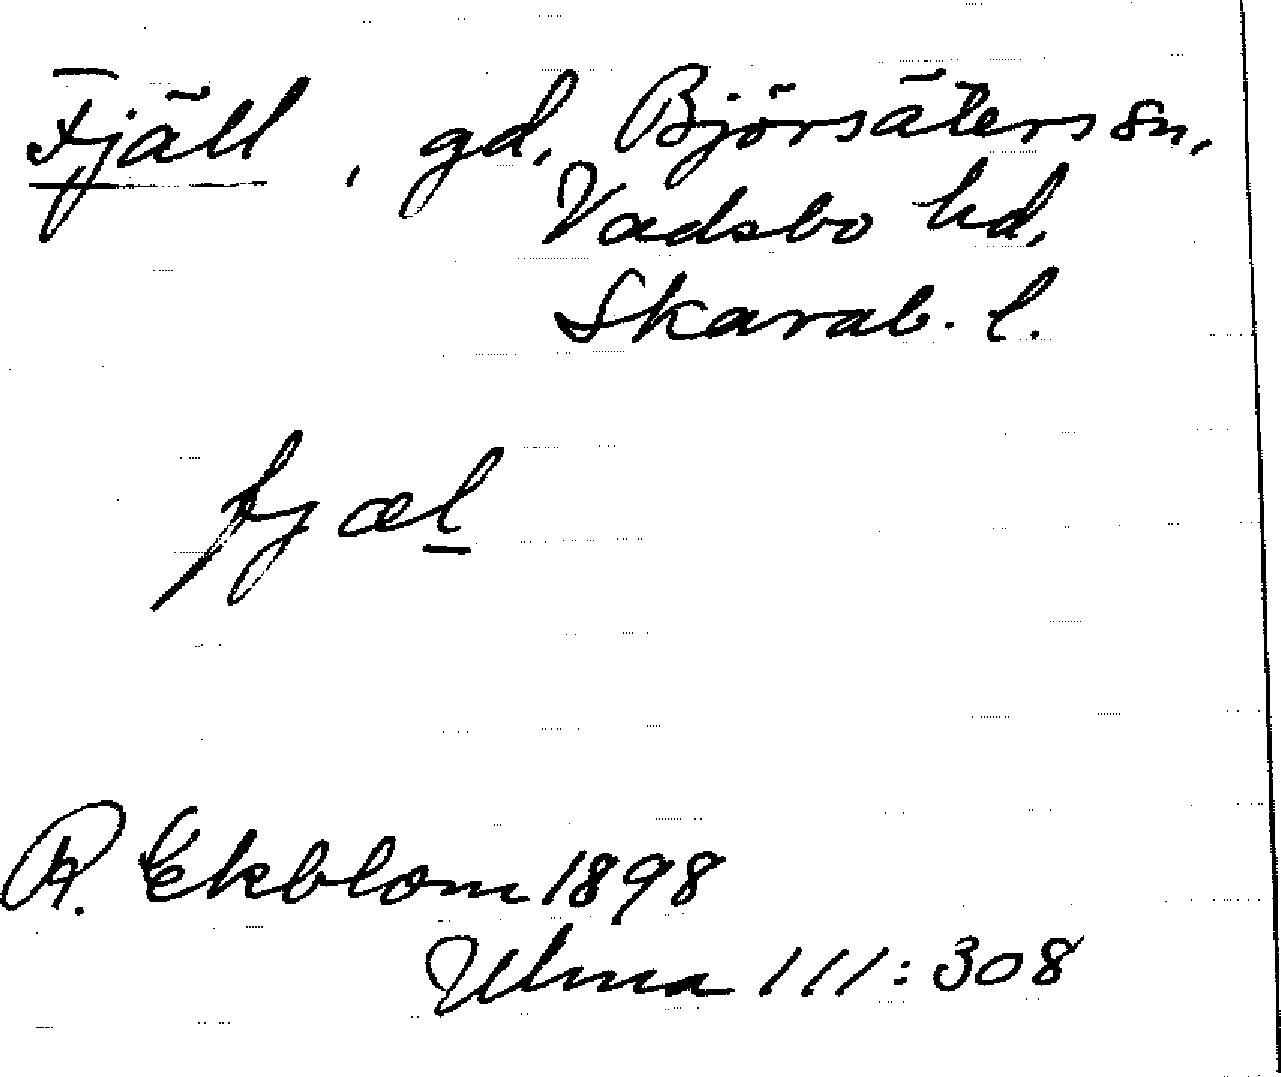 Fjäll, gd, Björsäters sn,
Vadsbo hd,
Skarab. l.
fjæl
R. Ekblom 1898
Ulma 111:308